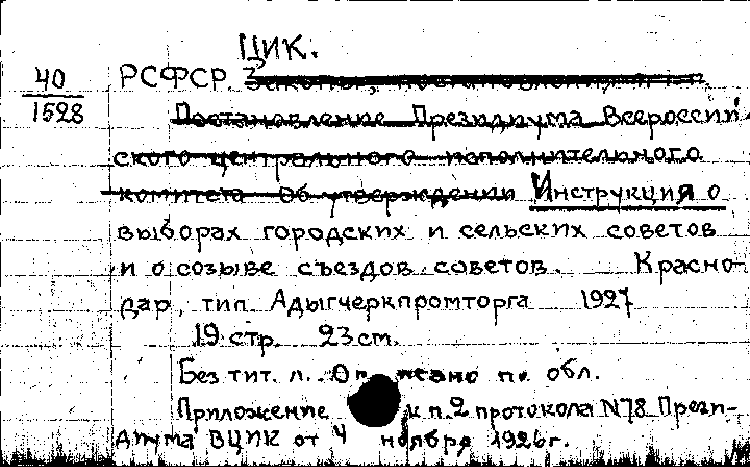 ЦИК.
40 РСФСР
1528 Постановление Президиума Всероссий
ского центрального исполнительного
комитета Об утверждении Инструкция о
выборах городских и сельских советов
и о созыве съездов советов. Красно-
дар, тип Адыгчеркпромторга 1927
19 стр. 23 см.
Без тит. л. Описано по обл.
Приложение к п. 2 протокола N78 Прези-
диума ВЦИК от 4 ноября 1926 г.